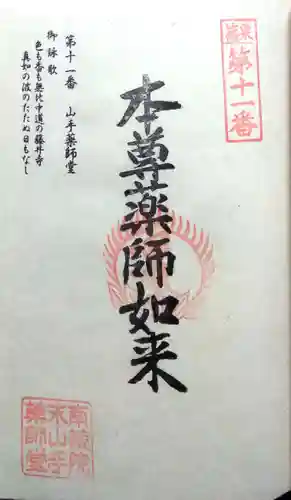 第十一番
本尊薬師如来
第十一番　山手薬師堂
御詠歌
色も香も無比中道の藤井寺
真如の波のたたぬ日もなし
薬師堂